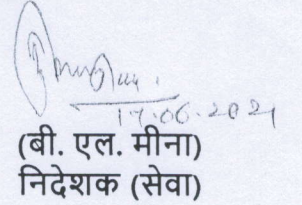 17.06.2021
(बी. एल. मीना)
निदेशक (सेवा)